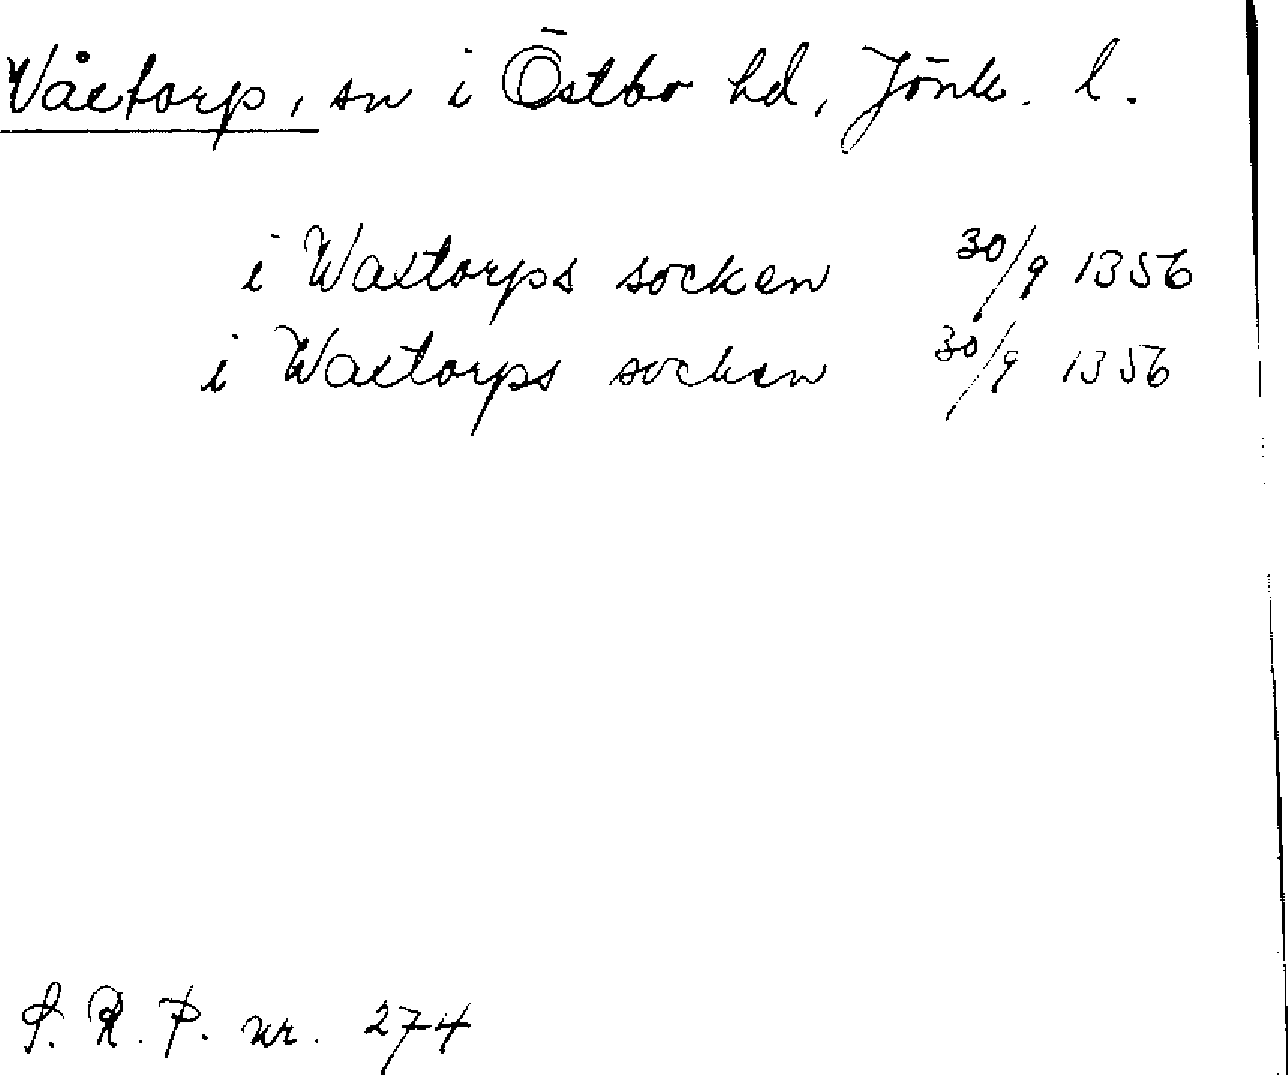 Våxtorp, sn i Östbo hd, Jönk. l.
i Waxtorps socken 30/9 1356
i Waxtorps socken 30/9 1356
S. R. P. nr. 274